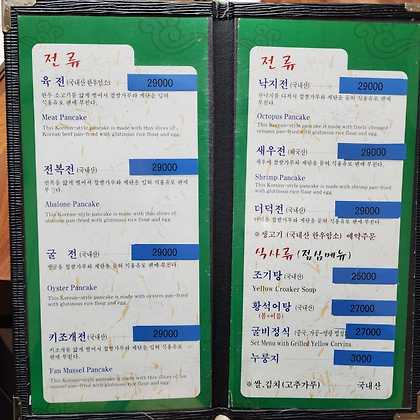 전 류
육 전 (국내산 한우암소) 29000
한우 소고기를 얇게 썰어서 찹쌀가루와 계란을 입혀 식용유로 팬에 부친다.
Meat Pancake
This Korean-style pancake is made with thin slices of
Korean beef pan-fried with glutinous rice flour and egg.
전복전 (국내산) 29000
전복을 얇게 썰어서 찹쌀가루와 계란을 입혀 식용유로 팬에 부친다.
Abalone Pancake
This Korean-style pancake is made with thin slices of abalone
pan-fried with glutinous rice flour and egg.
굴 전 (국내산) 29000
찹쌀가루와 계란을 입혀 식용유로 팬에 부친다.
Oyster Pancake
This Korean-style pancake is made with oysters pan-fried
with glutinous rice flour and egg.
키조개전 (국내산) 29000
키조개를 얇게 썰어서 찹쌀가루와 계란을 입혀 식용유로 팬에 부친다.
Fan Mussel Pancake
This Korean-style pancake is made with thin slices of fan
mussel pan-fried with glutinous rice flour and egg.
전 류
낙지전 (국내산) 29000
찹쌀가루와 계란을 입혀 식용유로 팬에 부친다.
Octopus Pancake
This Korean-style pancake is made with finely chopped
octopus pan-fried with glutinous rice flour and egg.
새우전 29000
새우에 찹쌀가루와 계란을 입혀 식용유로 팬에 부친다.
Shrimp Pancake
This Korean-style pancake is made with shrimp pan-fried
with glutinous rice flour and egg.
더덕전 (국내산) 29000
찹쌀가루와 계란을 입혀 식용유로 팬에 부친다.
※ 생고기 (국내산 한우암소) 예약주문
식사류 (점심메뉴)
조기탕 (국내산) 25000
Yellow Croaker Soup
황석어탕 (국내산) 27000
(봄~여름)
굴비정식 27000
Set Menu with Grilled Yellow Corvina
누룽지 3000
※ 쌀, 김치 (고추가루) 국내산